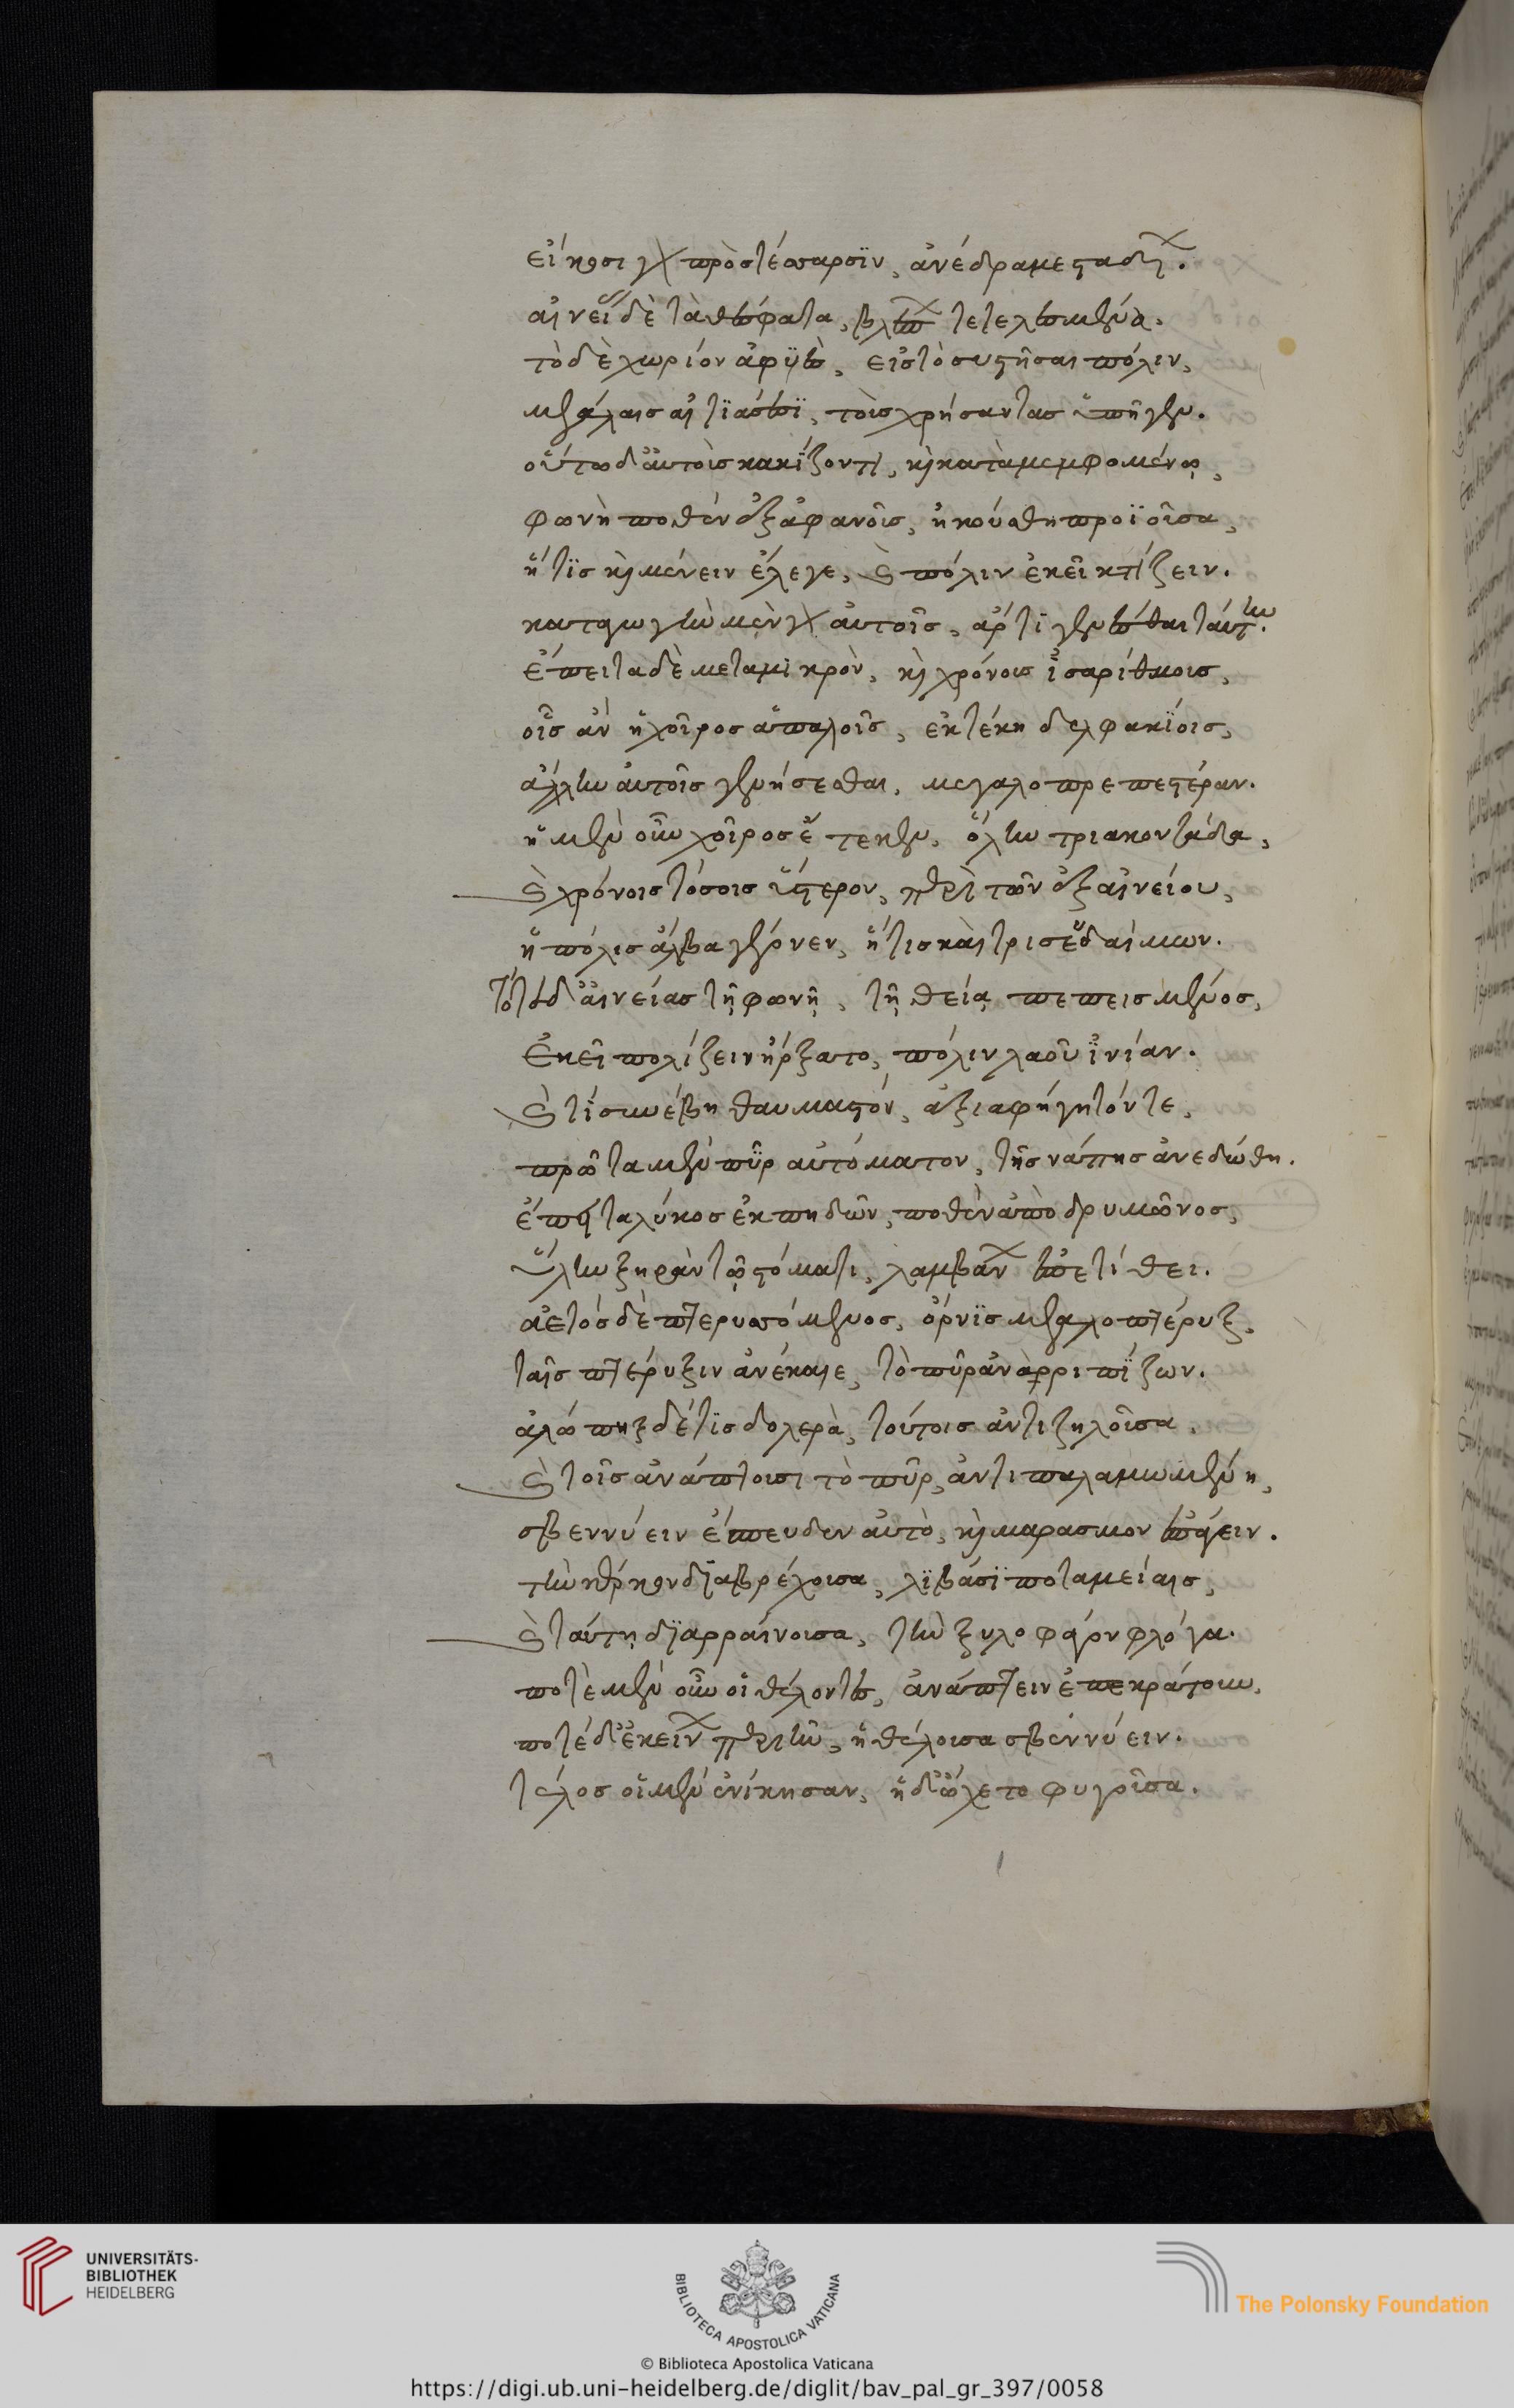 εἴκοσι γὰρ πρὸς τέσσαρσϊν, ἀνέδραμε σταδίοις.
αἰνείας δὲ τὰ θέσφατα, βλέπων τετελεσμένα.
τὸ δὲ χωρίον ἀφϋὲς, εἰς τὸ συστῆσαι πόλιν,
μεγάλαις αἰτϊάσεσϊ, τοὺς χρήσαντας ὕπῆγεν.
οὕτω δ' αὐτοὺς κακΐζοντι, καὶ κατὰμεμφομένῳ,
φωνὴ ποθὲν ἐξ ἀφανοῦς, ἠκούσθη προϊοῦσα,
ἥτϊς καὶ μένειν ἔλεγε, καὶ πόλιν ἐκεῖ κτίζειν.
καταγωγὴν μὲν γὰρ αὐτοῖς, ἄρτϊ γενέσθαι ταύτην.
ἔπειτα δὲ μεταμικρὸν, καὶ χρόνοις ἰσαρίθμοις,
οἷς ἂν ἡ χοῖρος ἁπαλοῖς, ἐκτέκη δελφακίοις,
ἄλλην αὐτοῖς γενήσεσθαι, μεγαλοπρεπεστέραν.
ἡ μὲν οὖν χοῖρος ἔτεκεν, ὅλην τριακοντάδα,
καὶ χρόνοις τόσοις ὕστερον, παρὰ τῶν ἐξ αἰνείου,
ἡ πόλις ἄλβα γέγονεν, ἥτις καὶ τρισεύδαίμων.
Τότε δ' αἰνείας τῇ φωνῇ, τῇ θείᾳ πεπεισμένος,
ἐκεῖ πολίζειν ἤρξατο, πόλιν λαοῦ ϊνίαν.
καὶ τί συνέβη θαυμαστόν, ἀξιαφήγητόν τε,
πρῶτα μὲν πῦρ αὐτόματον, τῆς νάπης ἀνεδώθη.
ἔπειτα λύκος ἐκπηδῶν, ποθὲν ἀπὸ δρυμῶνος,
ὕλην ξηρὰν τῷ στόματι, λαμβάνων ἐπετίθει.
ἀετὸς δὲ πτερυσσόμενος, ὄρνϊς μεγαλοπτέρυξ,
ταῖς πτέρυξιν ἀνέκαιε, τὸ πῦρ ἀνὰρριπΐζων.
ἀλώπηξ δέ τϊς δολερὰ, τούτοις ἀντιζηλοῦσα,
καὶ τοῖς ἀνάπτουσι τὸ πῦρ, ἀντιπαλαμωμένη,
σβεννύειν ἔσπευδεν αὐτὸ, καὶ μαρασμὸν ἐπάγειν.
τὴν κέρκον δϊαβρέχουσα, λϊβάσϊ ποταμείαις,
καὶ ταύτῃ δϊαρραίνουσα, τὴν ξυλοφάγον φλόγα.
ποτὲ μὲν οὖν οἱ θέλοντες, ἀνάπτειν ἐπεκράτουν,
ποτὲ δ' ἐκείνων περιῆν, ἡ θέλουσα σβεννύειν.
τέλος οἱ μὲν ἐνίκησαν, ἡ δ' ὤχετο φυγοῦσα.
UNIVERSITÄTS-
BIBLIOTHEK
HEIDELBERG
BIBLIOTECA APOSTOLICA VATICANA
The Polonsky Foundation
© Biblioteca Apostolica Vaticana
https://digi.ub.uni-heidelberg.de/diglit/bav_pal_gr_397/0058